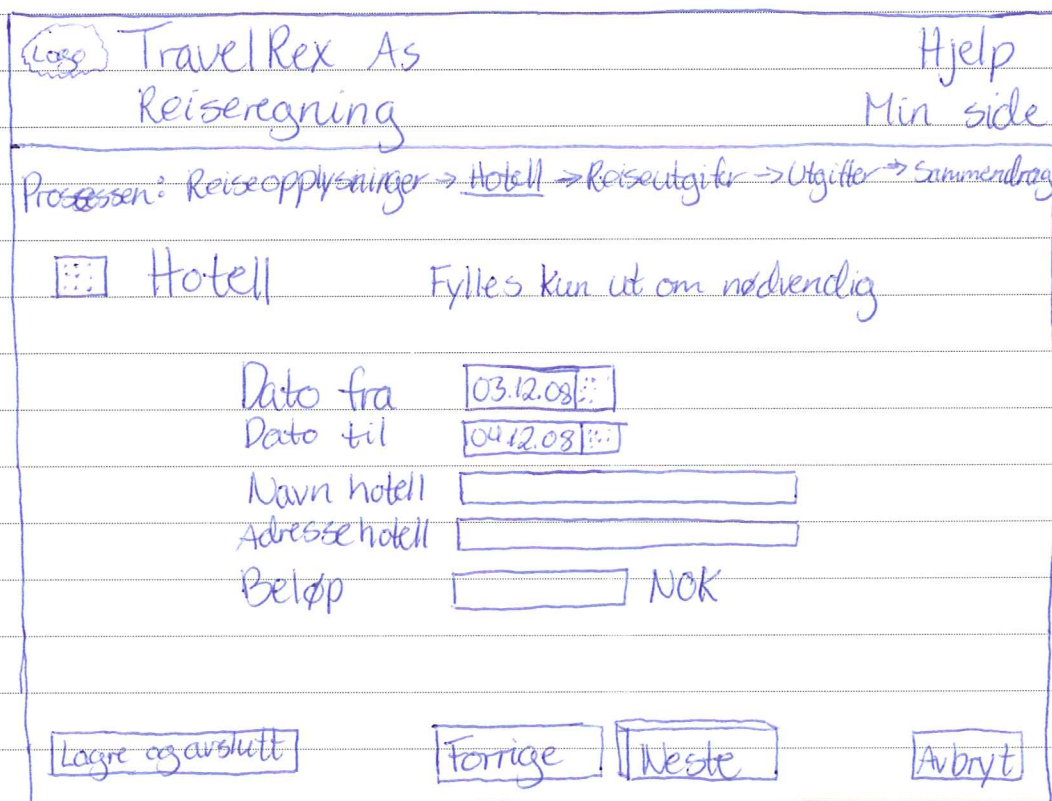 Logo TravelRex As Hjelp
Reiseregning Min side
Prosessen: Reiseopplysninger → Hotell → Reiseutgifter → Utgifter → Sammendrag
Hotell Fylles kun ut om nødvendig
Dato fra 03.12.08
Dato til 04.12.08
Navn hotell
Adresse hotell
Beløp NOK
Lagre og avslutt Forrige Neste Avbryt